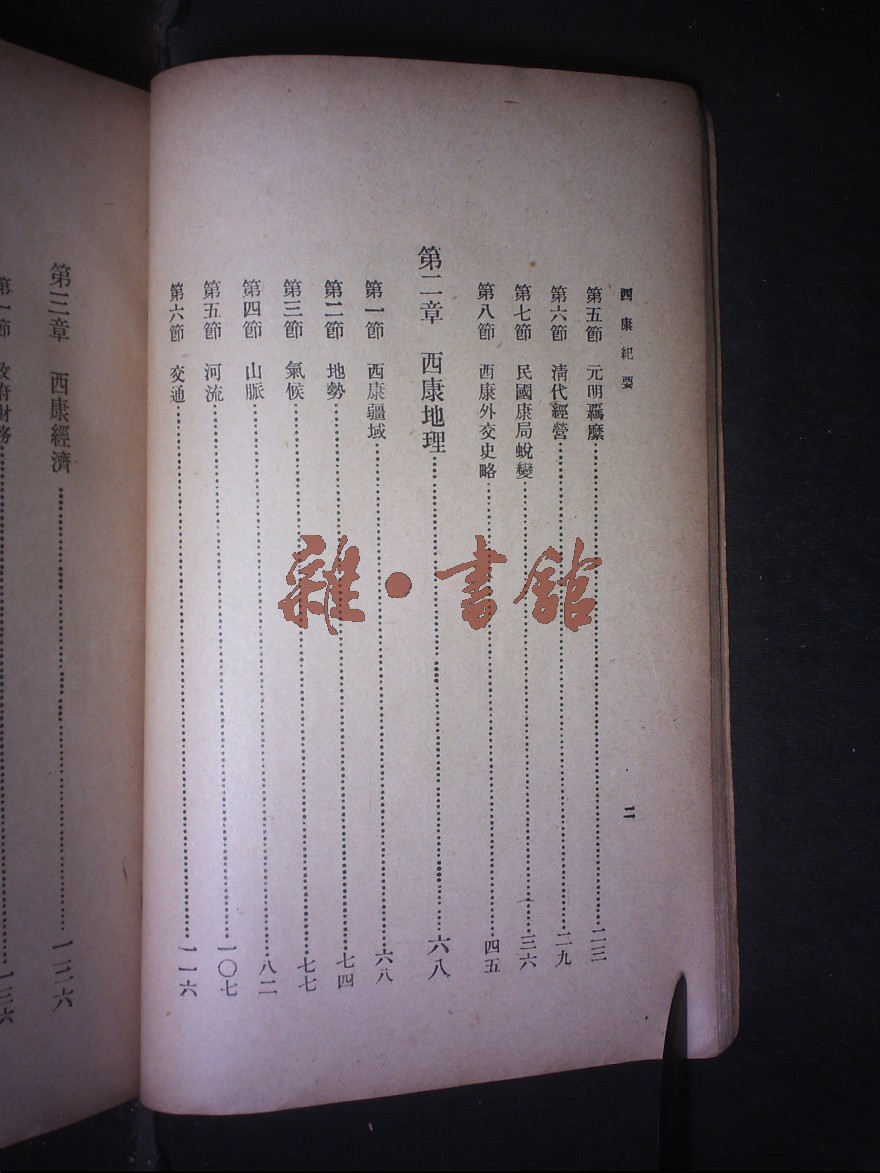 西康紀要
二
第五節 元明羈縻…………二三
第六節 清代經營…………二九
第七節 民國康局蛻變…………三六
第八節 西康外交史略…………四五
第二章 西康地理…………六八
第一節 西康疆域…………六八
第二節 地勢…………七四
第三節 氣候…………七七
第四節 山脈…………八二
第五節 河流…………一〇七
第六節 交通…………一一六
第三章 西康經濟…………一三六
第一節 政府財務…………一三六
雜·書館